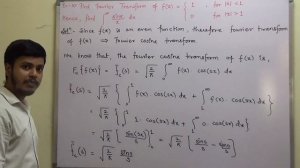 Find Fourier Transform of f(x) = { 1 , for |x|<1
0 , for |x|>1
Hence, find ∫₀^∞ sinx/x dx
Solⁿ: Since f(x) is an even function, therefore fourier transform
of f(x) ⇒ fourier cosine transform.
We know that, the fourier cosine transform of f(x) is,
F_c{f(x)} = f̄_c(s) = √(2/π) ∫₀^∞ f(x) cos(sx) dx
f̄_c(s) = √(2/π) { ∫₀^1 f(x) · cos(sx) dx + ∫₁^∞ f(x) · cos(sx) dx }
= √(2/π) { ∫₀^1 1 · cos(sx) dx + ∫₁^∞ 0 · cos(sx) dx }
= √(2/π) [ sin(sx)/s ]₀^1 = √(2/π) [ sins/s - sin0/s ]
f̄_c(s) = √(2/π) sins/s